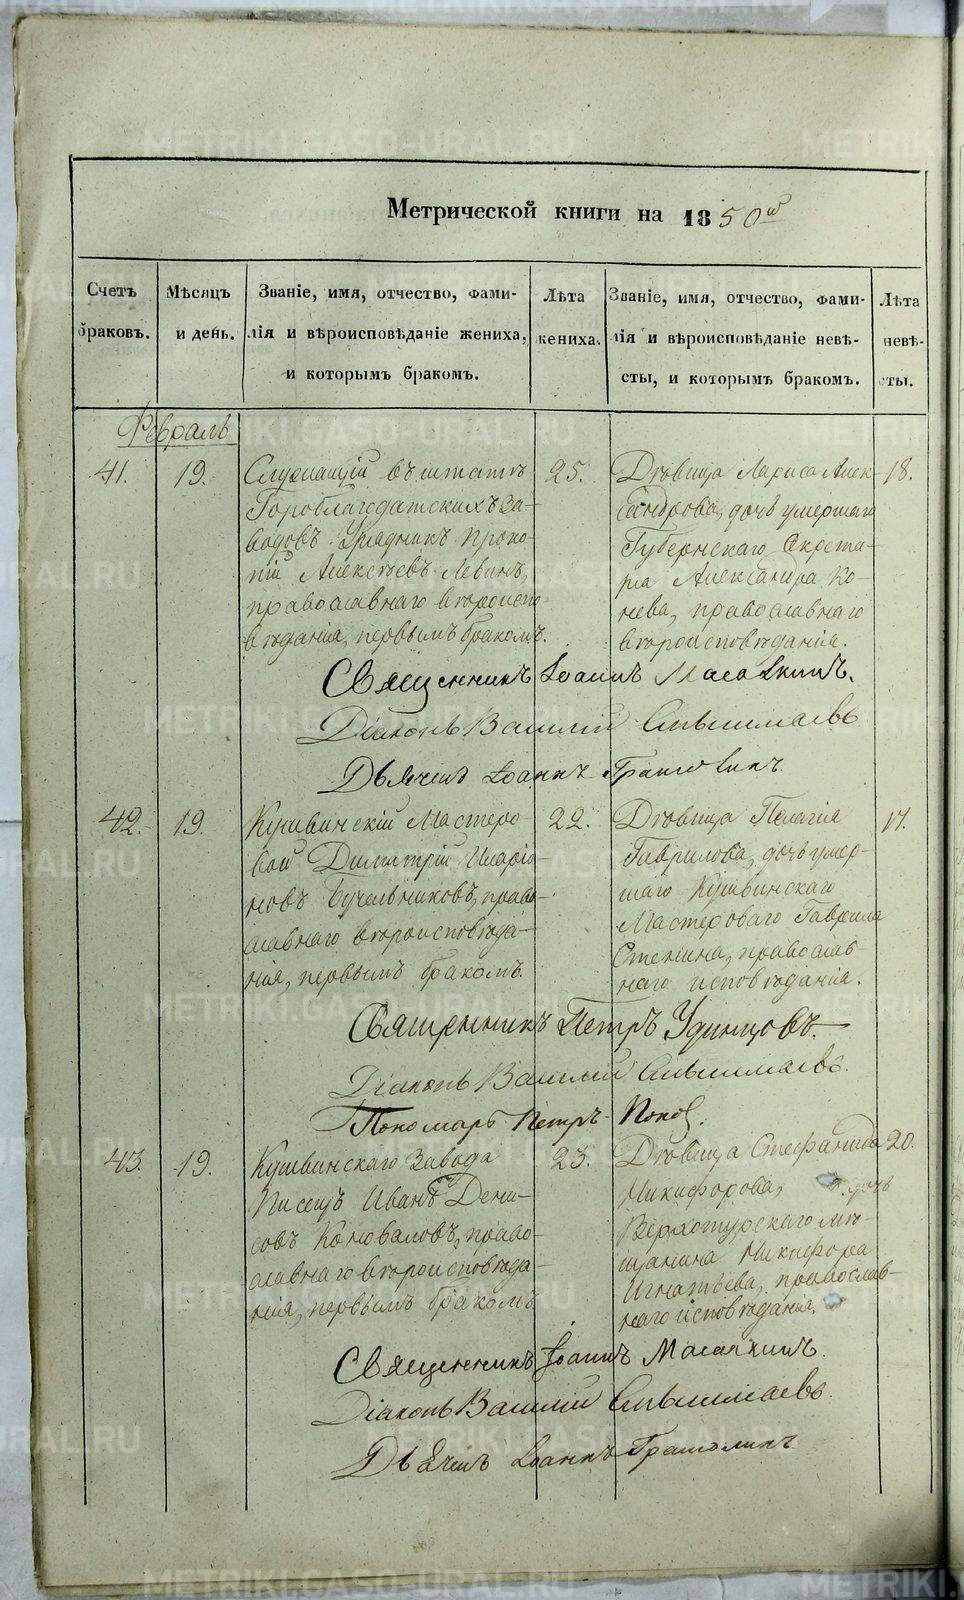 Метрической книги на 1850й
Счетъ браковъ.
Мѣсяцъ и день.
Званіе, имя, отчество, фами-
лія и вѣроисповѣданіе жениха,
и которымъ бракомъ.
Лѣта жениха.
Званіе, имя, отчество, фами-
лія и вѣроисповѣданіе невѣ-
сты, и которымъ бракомъ.
Лѣта невѣ-
сты.
Февраль
41. 19.
Служащій въ штатѣ
Гороблагодатскихъ За-
водовъ Урядникъ Проко-
пій Алексѣевъ Левинъ,
православнаго вѣроиспо-
вѣданія, первымъ бракомъ.
25.
Дѣвица Лариса Алек-
сандрова, дочь умершаго
Губернскаго Секрета-
ря Александра Ко-
нева, православнаго
вѣроисповѣданія.
18.
Священникъ Іоаннъ
Діаконъ Василій
Дьячекъ Іоаннъ
42. 19.
Кушвинскій Мастеро-
вой Димитрій Иларіо-
новъ Бучельниковъ, право-
славнаго вѣроисповѣда-
нія, первымъ бракомъ.
22.
Дѣвица Пелагія
Гаврилова, дочь умер-
шаго Кушвинскаго
Мастероваго Гаврила
Стенина, православ-
наго исповѣданія.
17.
Священникъ Петръ Удинцовъ.
Діаконъ Василій
Пономарь Петръ Поповъ.
43. 19.
Кушвинскаго Завода
Писецъ Иванъ Дени-
совъ Коноваловъ, право-
славнаго вѣроисповѣда-
нія, первымъ бракомъ
23.
Дѣвица Стефанида
Никифорова, дочь
Верхотурскаго мѣ-
щанина Никифора
Игнатьева, православ-
наго исповѣданія.
20.
Священникъ Іоаннъ
Діаконъ Василій
Дьячекъ Іоаннъ
METRIKI.GASO-URAL.RU